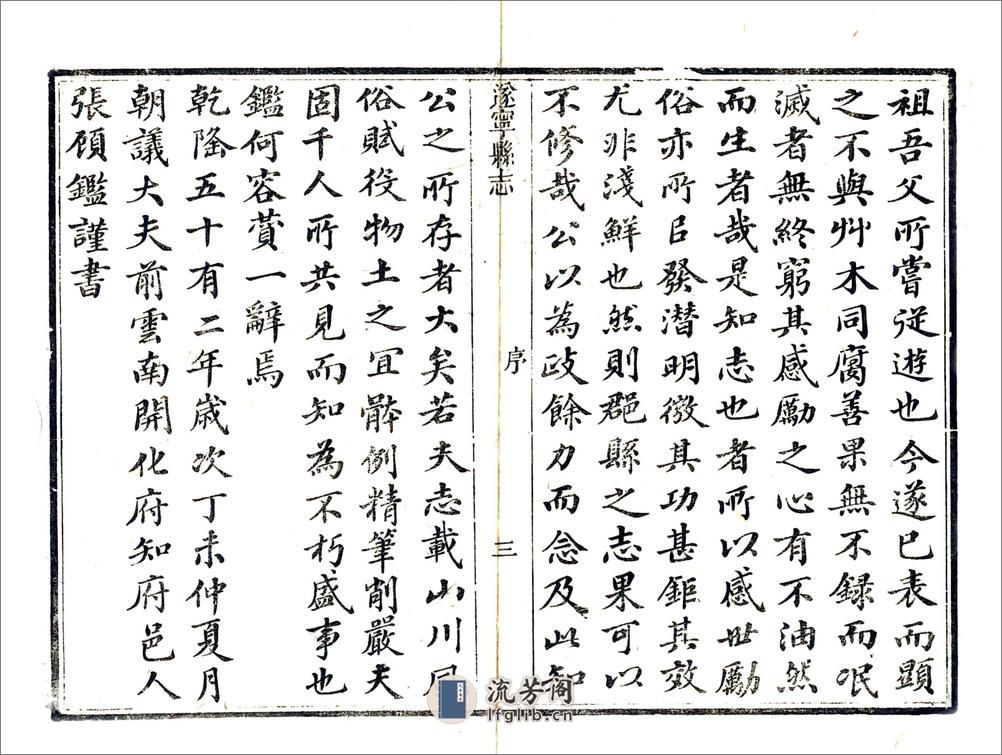 祖吾父所嘗從遊也今遂已表而顯
之不與艸木同腐善果無不録而泯
滅者無終窮其感勵之心有不油然
而生者哉是知志也者所以感世勵
俗亦所㠯發潜明微其功甚鉅其效
尤非淺鮮也然則郡縣之志果可以
不修哉公以為政餘力而念及此知
遂寧縣志
序
三
公之所存者大矣若夫志載山川風
俗賦役物土之宜骵例精筆削嚴夫
固千人所共見而知為不朽盛事也
鑑何容贊一辭焉
乾隆五十有二年歲次丁未仲夏月
朝議大夫前雲南開化府知府邑人
張顧鑑謹書
流芳閣
lfglib.cn